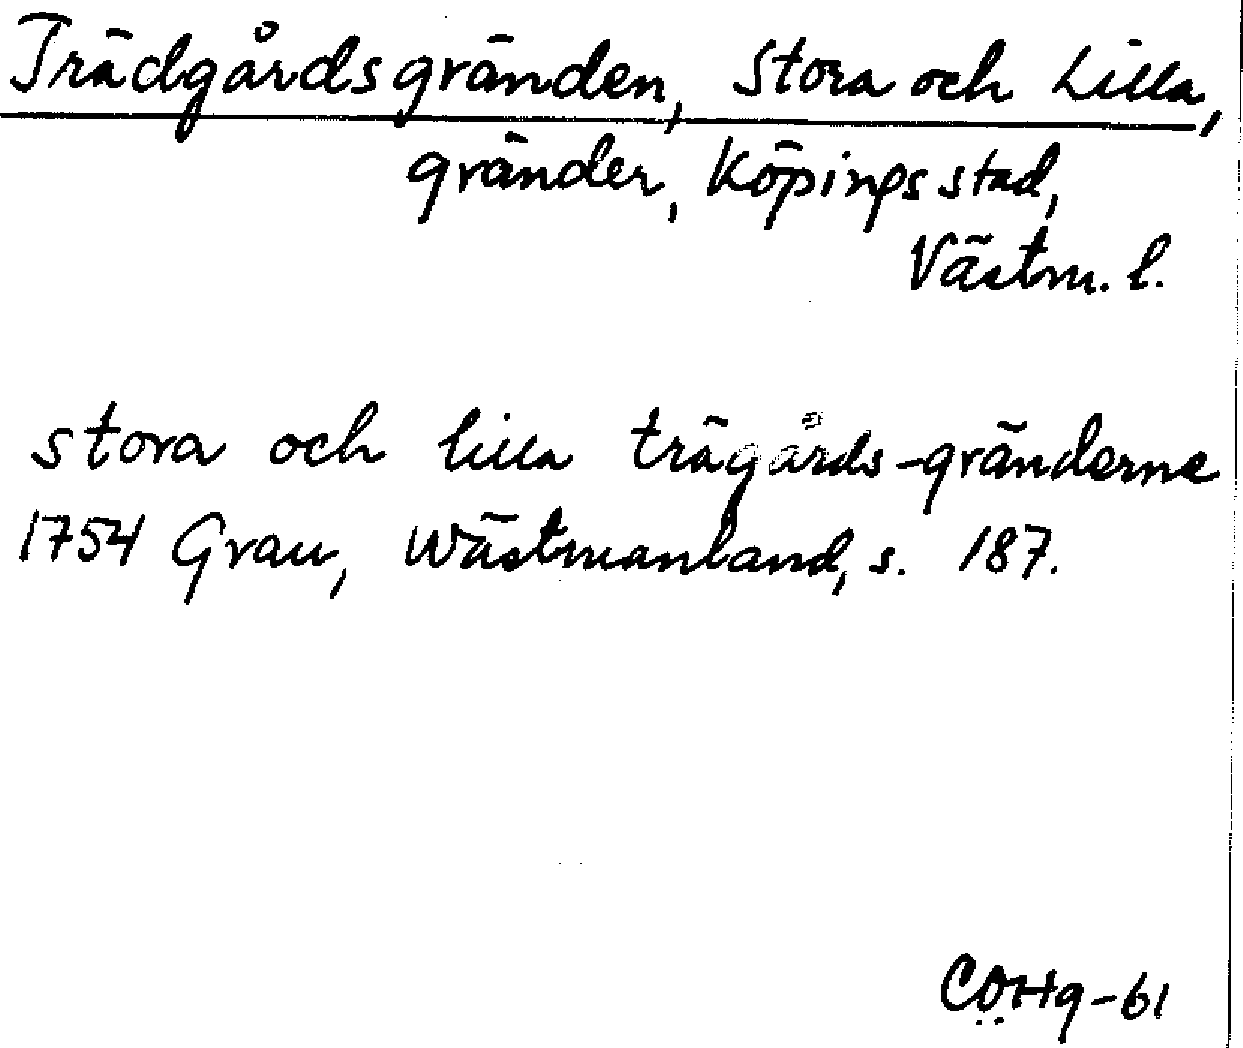 Trädgårdsgränden, Stora och Lilla,
gränder, Köpings stad,
Västm. l.
stora och lilla trägårds-gränderne
1754 Grau, Wästmanland, s. 187.
CÖHg-61